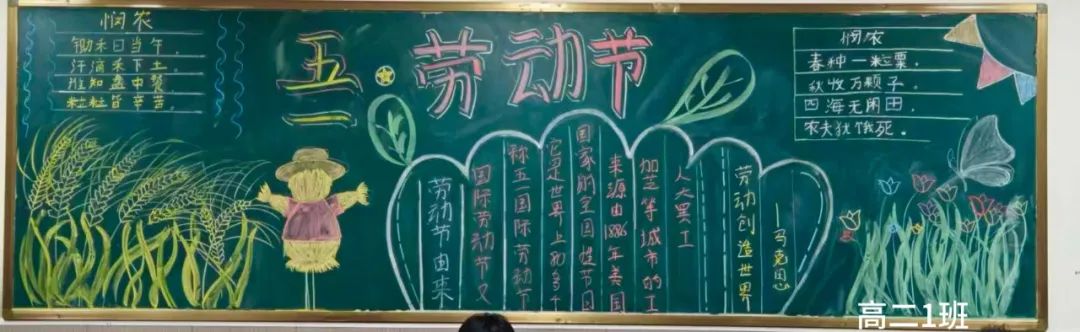 悯农
锄禾日当午，
汗滴禾下土。
谁知盘中餐，
粒粒皆辛苦。
五一劳动节
劳动节由来
国际劳动节又
称五一国际劳动节
它是世界上80多个
国家的全国性节日
来源由1886年美国
加芝等城市的工
人大罢工
劳动创造世界
—马克思
悯农
春种一粒粟，
秋收万颗子。
四海无闲田，
农夫犹饿死。
高二1班